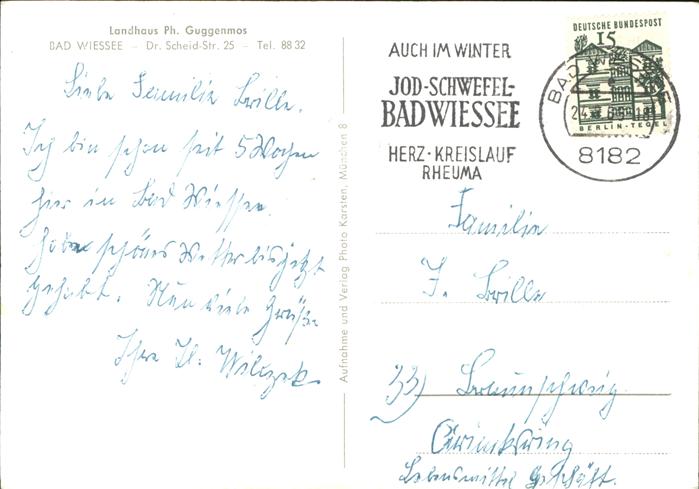 Landhaus Ph. Guggenmos
BAD WIESSEE - Dr. Scheid-Str. 25 - Tel. 88 32
Liebe Familie Brille.
Ich bin schon seit 5 Wochen
hier in Bad Wiessee.
habe schönes Wetter bis jetzt
gehabt. Nun viele Grüße
Ihre Wilczek
Aufnahme und Verlag Photo Karsten, München 8
AUCH IM WINTER
JOD-SCHWEFEL-
BAD WIESSEE
HERZ·KREISLAUF
RHEUMA
DEUTSCHE BUNDESPOST
15
BERLIN-TEGEL
BAD WIESSEE
8182
Familie
J. Brille
33) Braunschweig
Lebensmittel Geschäft.